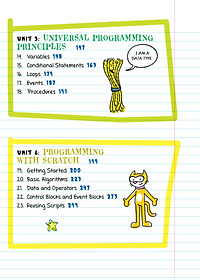 UNIT 5: UNIVERSAL PROGRAMMING
PRINCIPLES 147
I AM A
DATA TYPE.
14. Variables 148
15. Conditional Statements 163
16. Loops 174
17. Events 187
18. Procedures 191
UNIT 6: PROGRAMMING
WITH SCRATCH 199
19. Getting Started 200
20. Basic Algorithms 223
21. Data and Operators 247
22. Control Blocks and Event Blocks 273
23. Reusing Scripts 299